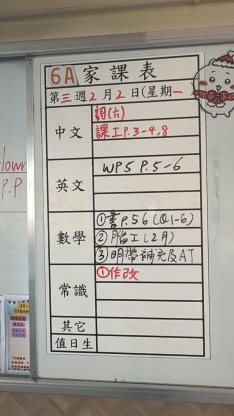 6A 家課表
第三週2月2日(星期一
中文 詞(六)
課工P.3-4,8
英文 WP5 P.5-6
數學 ①書P.56(Q1-6)
②腦工(2月)
③明帶補充及AT
常識 ①作改
其它
值日生
lown
P.P